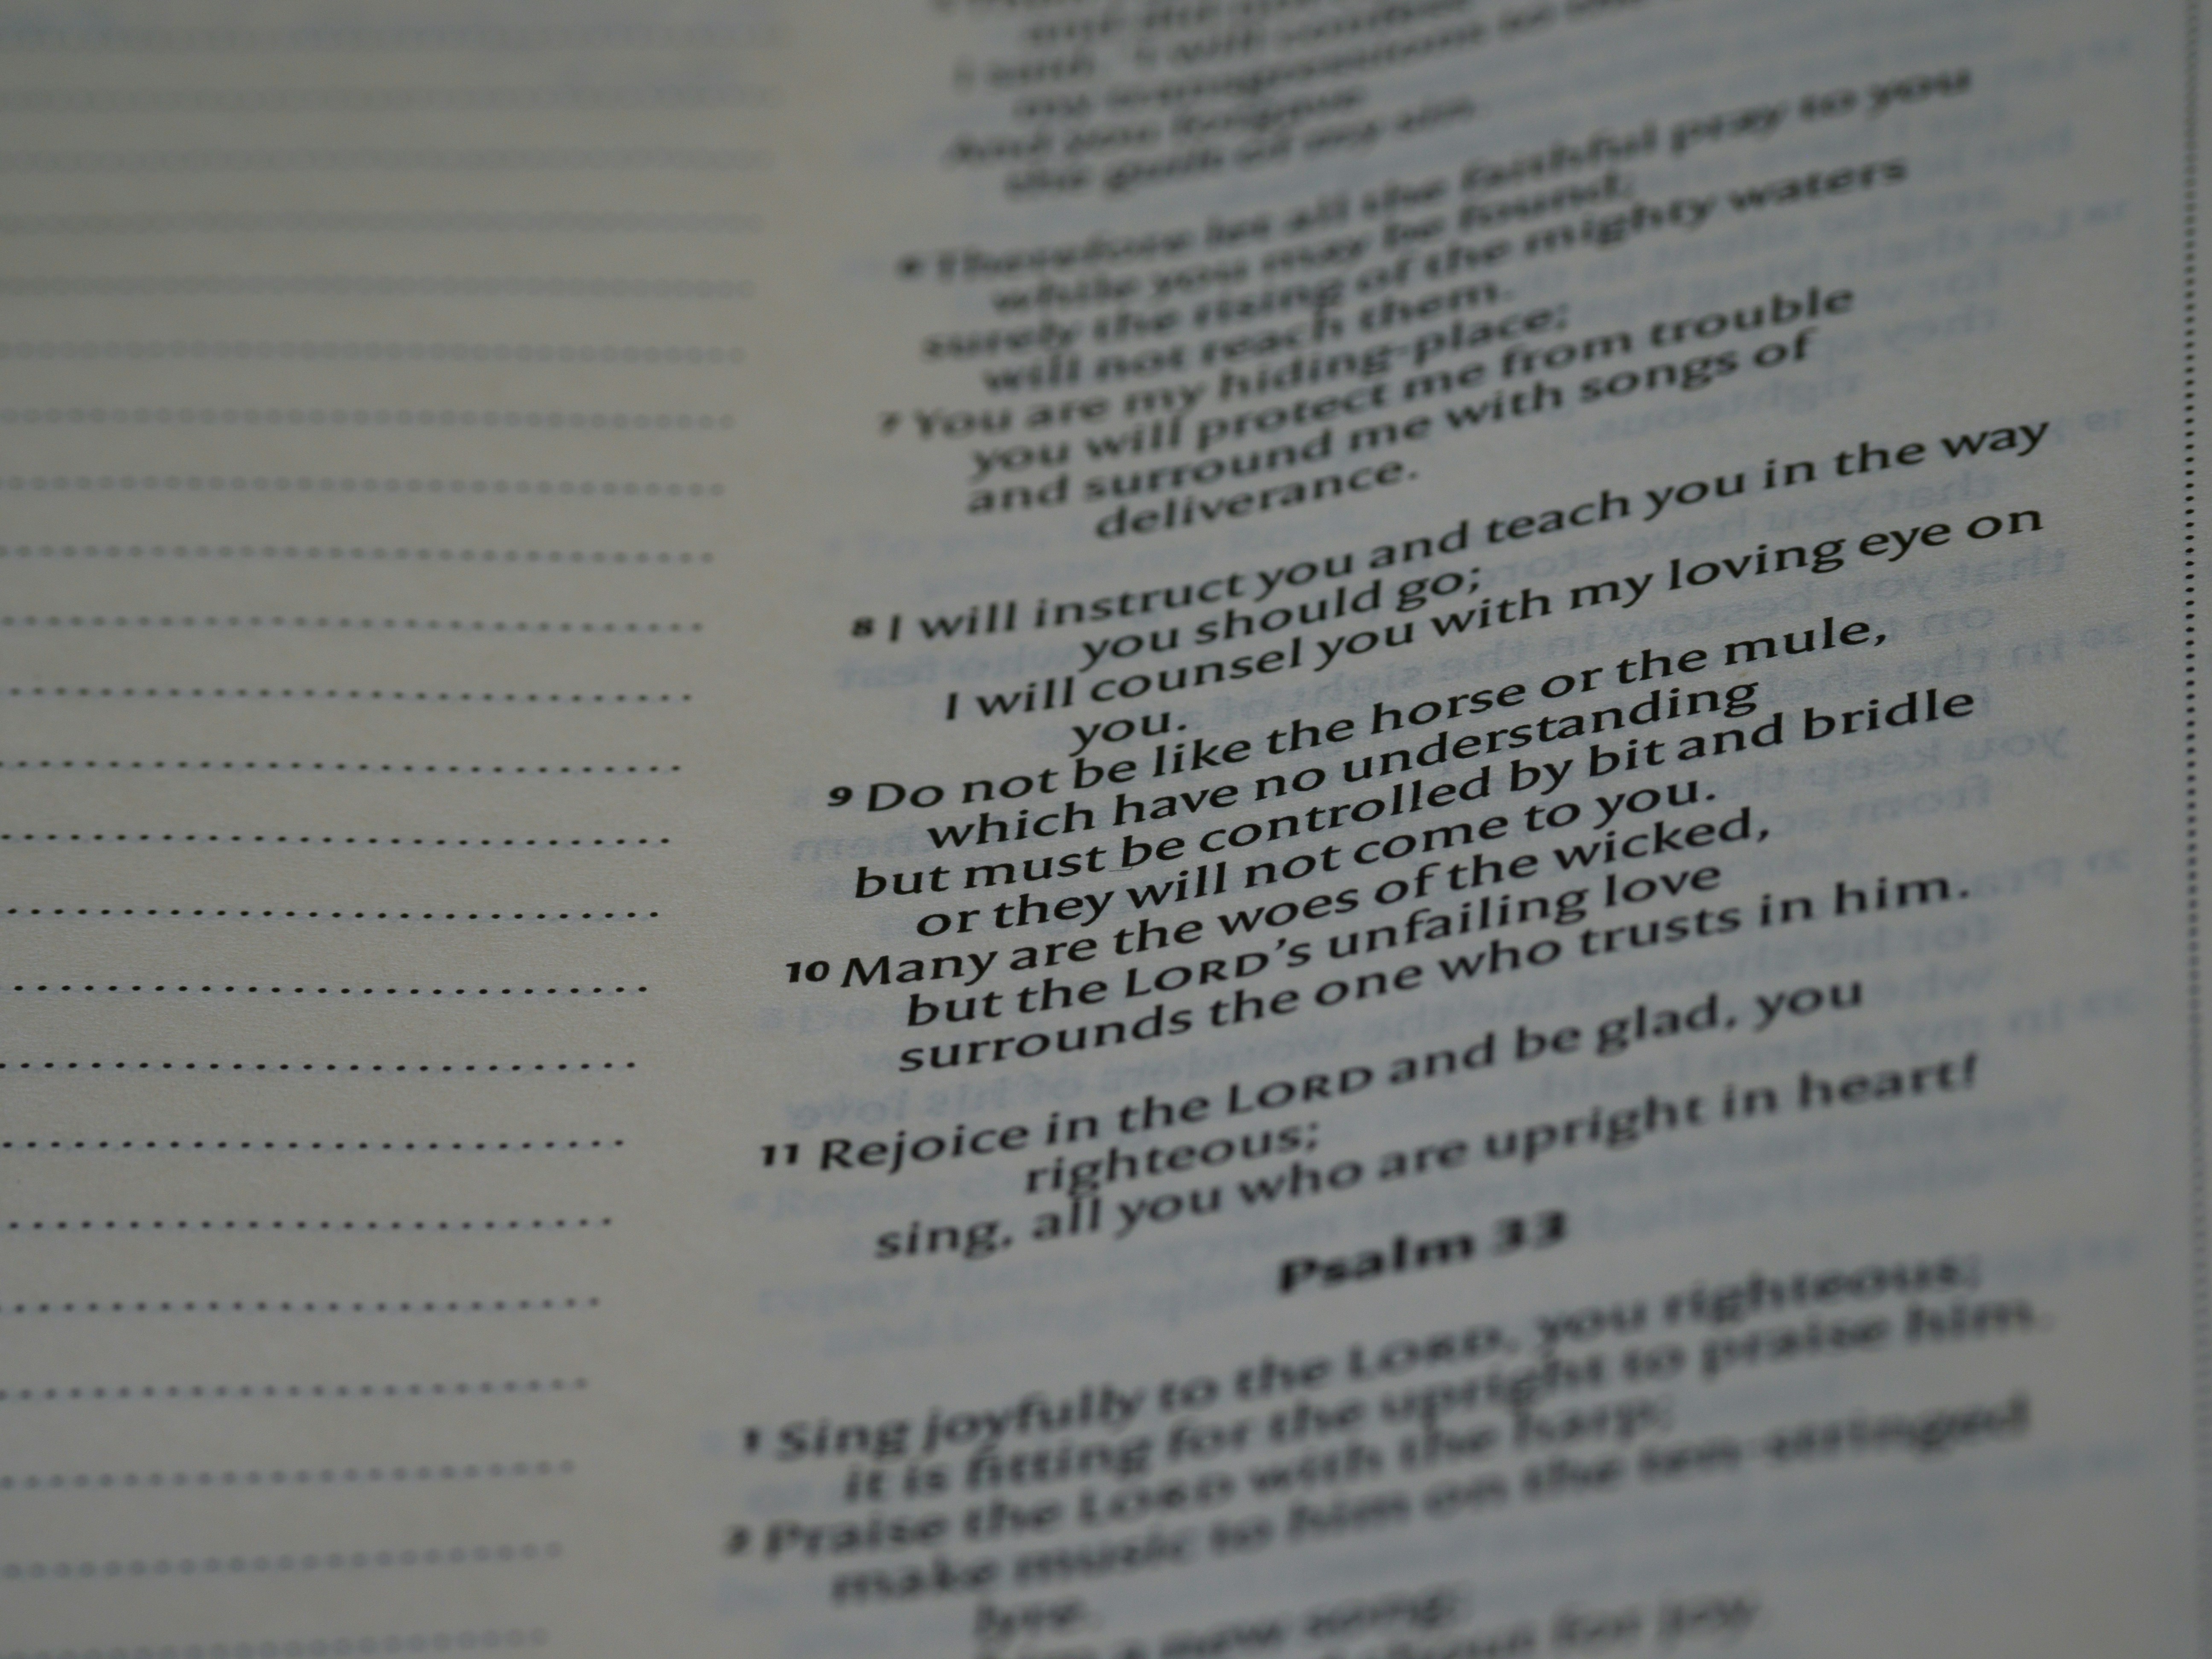 my transgressions to the
And you forgave
the guilt of my sin.
6 Therefore let all the faithful pray to you
while you may be found;
surely the rising of the mighty waters
will not reach them.
7 You are my hiding-place;
you will protect me from trouble
and surround me with songs of
deliverance.
8 I will instruct you and teach you in the way
you should go;
I will counsel you with my loving eye on
you.
9 Do not be like the horse or the mule,
which have no understanding
but must be controlled by bit and bridle
or they will not come to you.
10 Many are the woes of the wicked,
but the LORD's unfailing love
surrounds the one who trusts in him.
11 Rejoice in the LORD and be glad, you
righteous;
sing, all you who are upright in heart!
Psalm 33
1 Sing joyfully to the LORD, you righteous;
it is fitting for the upright to praise him.
2 Praise the LORD with the harp;
make music to him on the ten-stringed
lyre.
a new song;
for joy.